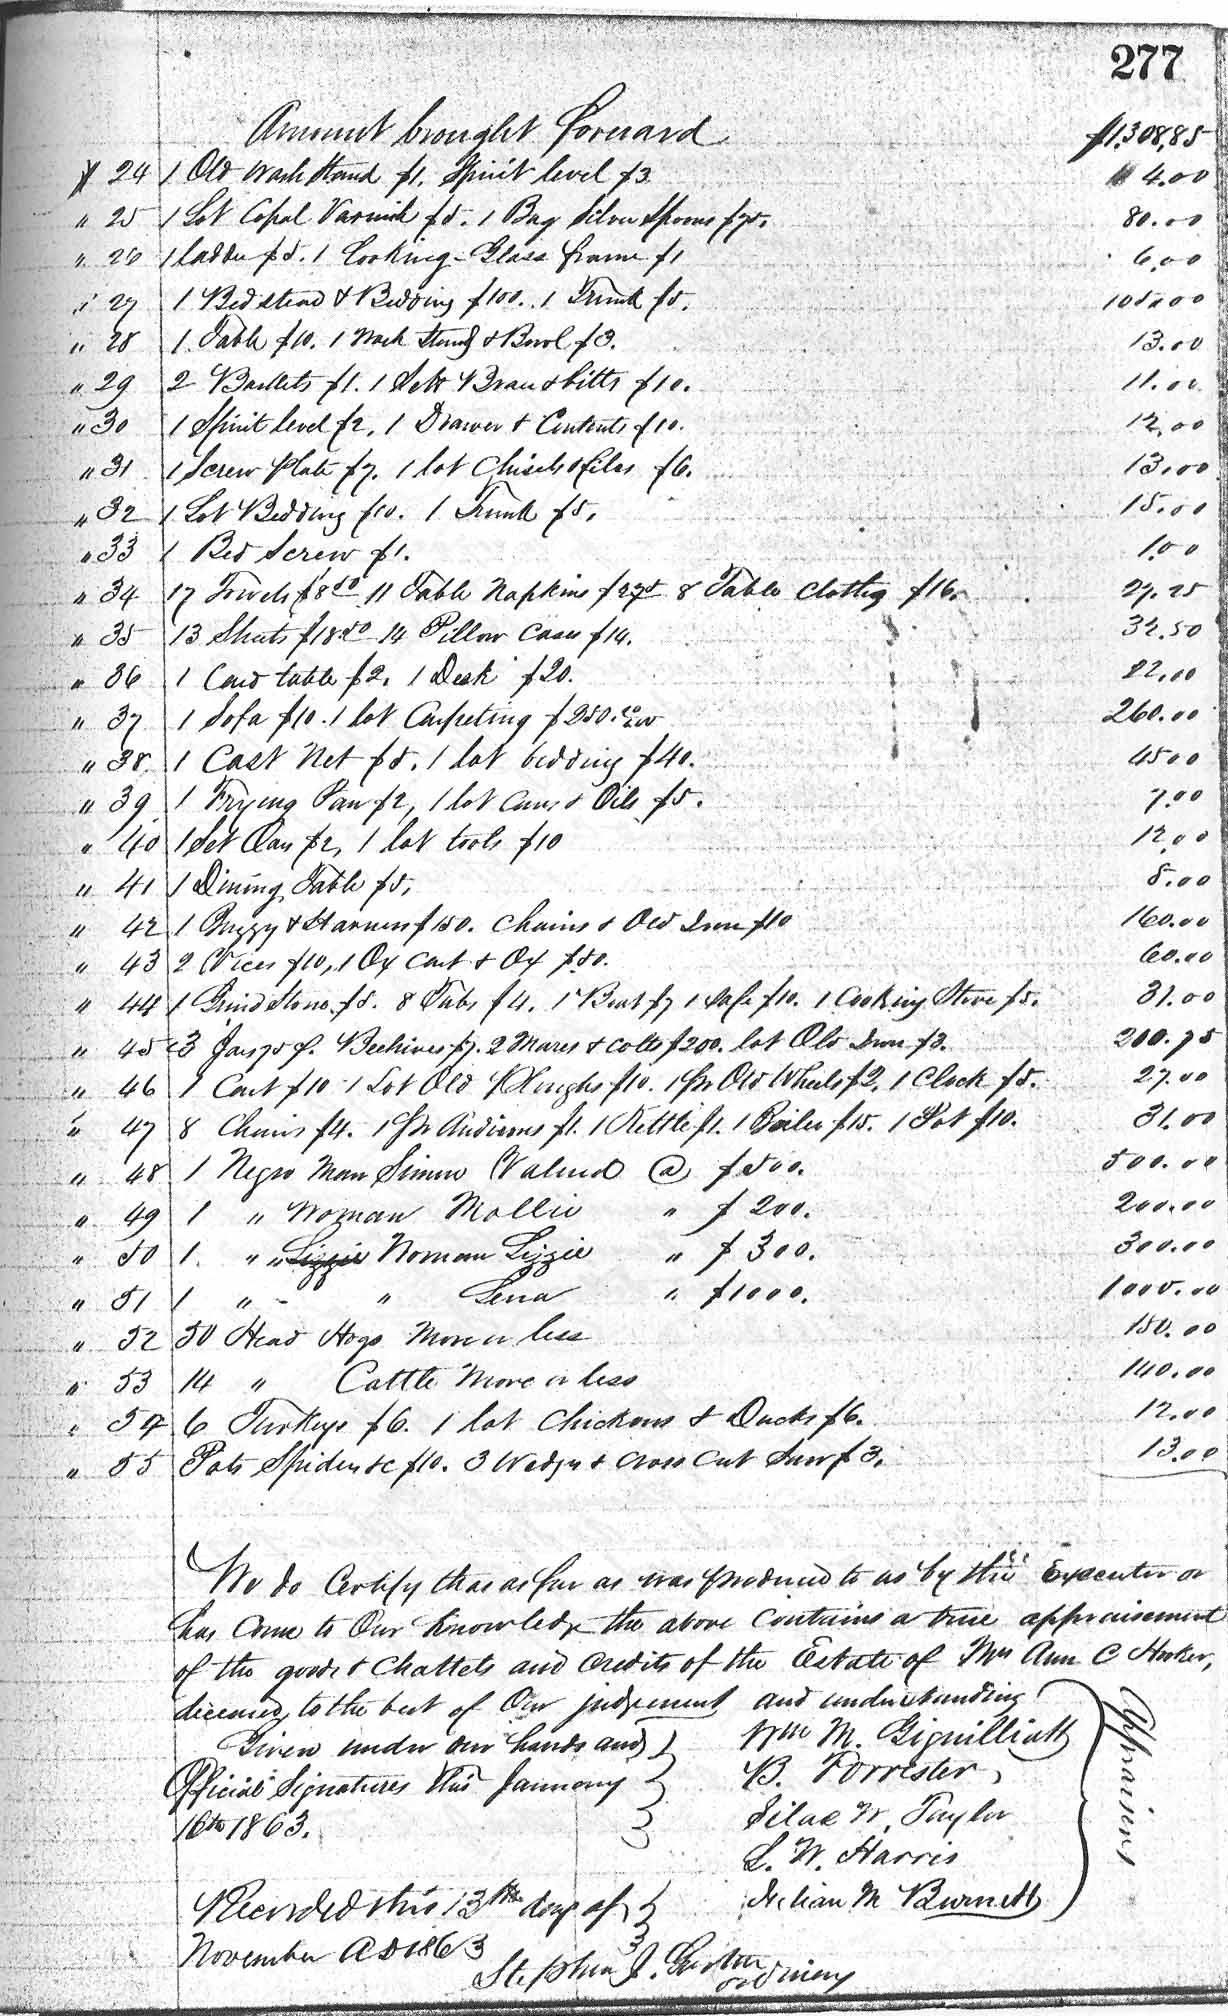 277
Amount brought forward $1,308,85
24 1 Old Wash Stand $1. Spirit level $3 4.00
" 25 1 Lot Copal Varnish $5. 1 Bag Silver Spoons $75. 80.00
" 26 1 ladder $5. 1 Looking-Glass frame $1 6.00
" 27 1 Bedstead & Bedding $100. 1 Trunk $5. 105.00
" 28 1 Table $10. 1 Wash Stand & Bowl $3. 13.00
" 29 2 Baskets $1. 1 Sett Brace & bitts $10. 11.00
" 30 1 Spirit level $2, 1 Drawer & Contents $10. 12,00
" 31 1 Screw Plate $7. 1 lot Chisels & files $6. 13.00
" 32 1 Lot Bedding $10. 1 Trunk $5, 15.00
" 33 1 Bed Screw $1. 1.00
" 34 17 Towels $8 50 11 Table Napkins $2 75 8 Table Cloths $16. 27.25
" 35 13 Sheets $18 50 14 Pillow Cases $14. 32.50
" 36 1 Card table $2. 1 Desk $20. 22.00
" 37 1 Sofa $10. 1 lot Carpeting $250. 260.00
" 38 1 Cast Net $5. 1 lot bedding $40. 45 00
" 39 1 Frying Pan $2, 1 lot Cans & Oils $5. 7.00
" 40 1 Set $2, 1 lot tools $10 12,00
" 41 1 Dining Table $5, 5.00
" 42 1 Buggy & Harness $150. Chains & Old Iron $10 160.00
" 43 2 Vices $10, 1 Ox Cart & Ox $50. 60.00
" 44 1 Grind Stone $5. 8 Tubs $4. 1 Boat $7 1 Safe $10. 1 Cooking Stove $5. 31.00
" 45 3 Jars 75 c. Beehives $7. 2 Mares & Colts $200. lot Old Iron $3. 210.75
" 46 1 Cart $10 1 Lot Old Ploughs $10. 1 Pr Old Wheels $2. 1 Clock $5. 27.00
" 47 8 Chairs $4. 1 Pr Andirons $1. 1 Kettle $1. 1 Boiler $15. 1 Pot $10. 31.00
" 48 1 Negro Man Simon Valued @ $500. 500.00
" 49 1 " Woman Mollie " $200. 200.00
" 50 1. " " Lizzie Woman Lizzie " $300. 300.00
" 51 1 " " Lena " $1000. 1000.00
" 52 50 Head Hogs More or less 150.00
" 53 14 " Cattle More or less 140.00
" 54 6 Turkeys $6. 1 lot Chickens & Ducks $6. 12.00
" 55 Pots Spiders &c $10. 3 Wedges & Cross Cut Saw $3. 13.00
We do Certify that as far as was produced to us by the Executor or
has Come to Our Knowledge the above Contains a true appraisement
of the goods & Chattels and Credits of the Estate of Mrs Ann C Hooker,
deceased, to the best of Our judgement and understanding
Given under our hands and
Official Signatures this January
16th 1863.
Wm M. Gignilliatt
B. Forrester,
Silas W. Taylor
L. W. Harris
M Burnett
Appraisers
Recorded this 13th day of
November AD 1863
Stephen J.
Ordinary